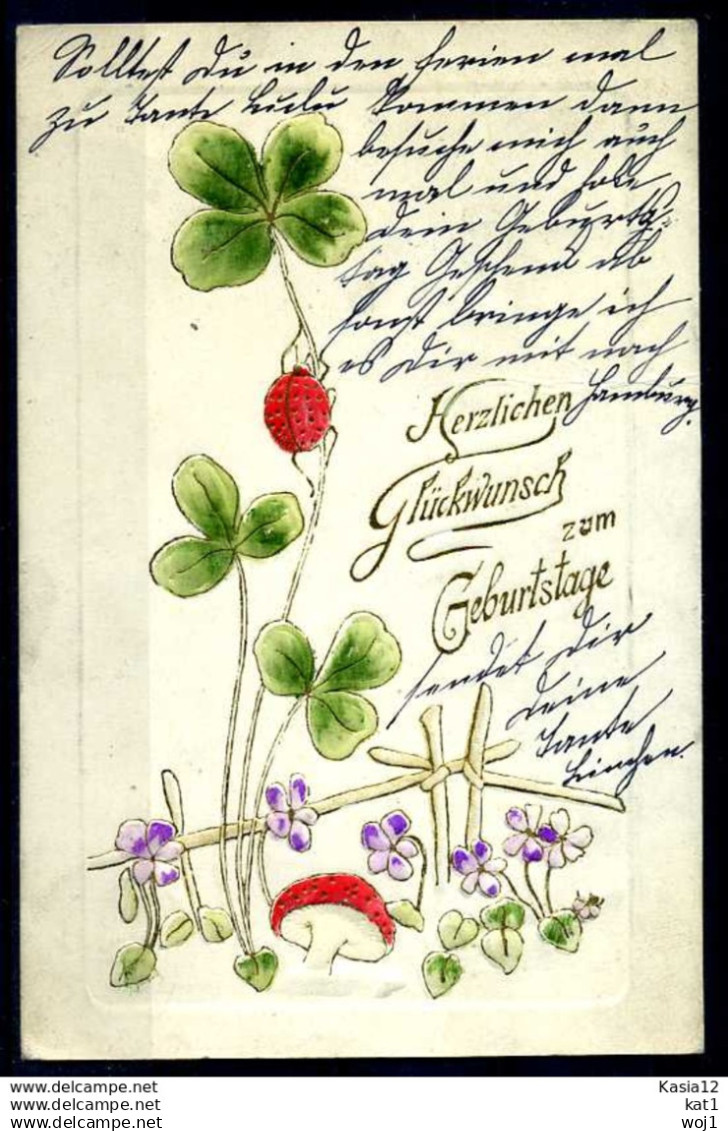 Solltest Du in den Ferien mal
zu Tante Lulu kommen dann
besuche mich auch
mal und hole
dein Geburts-
tag Geschenk ab
sonst bringe ich
es Dir mit nach
Hamburg.
Herzlichen
Glückwunsch
zum
Geburtstage
sendet Dir
Deine
Tante
Linchen.
www.delcampe.net
www.delcampe.net
www.delcampe.net
Kasia12
kat1
woj1